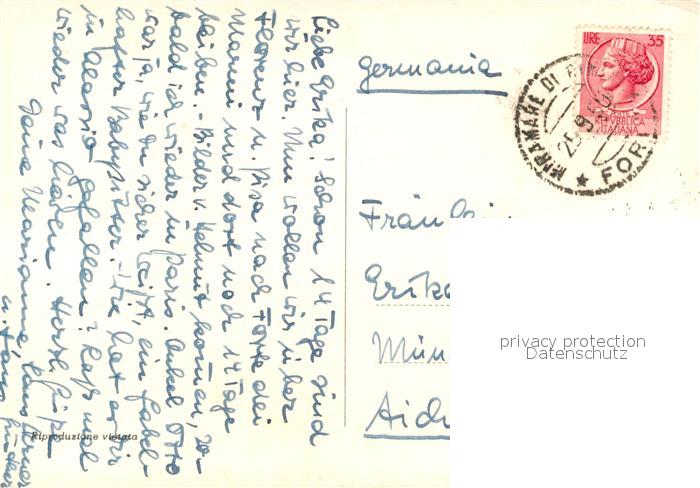 Liebe Erika! Schon 14 Tage sind
wir hier. Nun wollen wir über
Florenz u. Pisa nach Forte dei
Marmi und dort noch 14 Tage
bleiben. - Bilder v. Helmut kommen, so-
bald ich wieder in Paris. Onkel Otto
war ja, wie du sicher weißt, ein fabel-
hafter Babysitter. - Wie hat es dir
in Alassio gefallen? Laß mal
wieder was hören. Herzl. Grüße
Deine Marianne
Riproduzione vietata
Germania
LIRE 35
REPUBBLICA
ITALIANA
MIRAMARE DI
FOR
Fräulein
Erika
Mün
Aich
privacy protection
Datenschutz